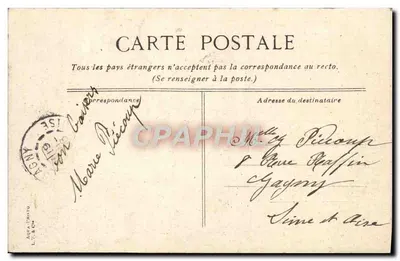 CARTE POSTALE
Tous les pays étrangers n'acceptent pas la correspondance au recto.
(Se renseigner à la poste.)
Correspondance
Adresse du destinataire
bon baisers
Marie Piecoup
Melle Piecoup
8 Rue Raffin
Gagny
Seine et Oise
GAGNY
CPAPHIL